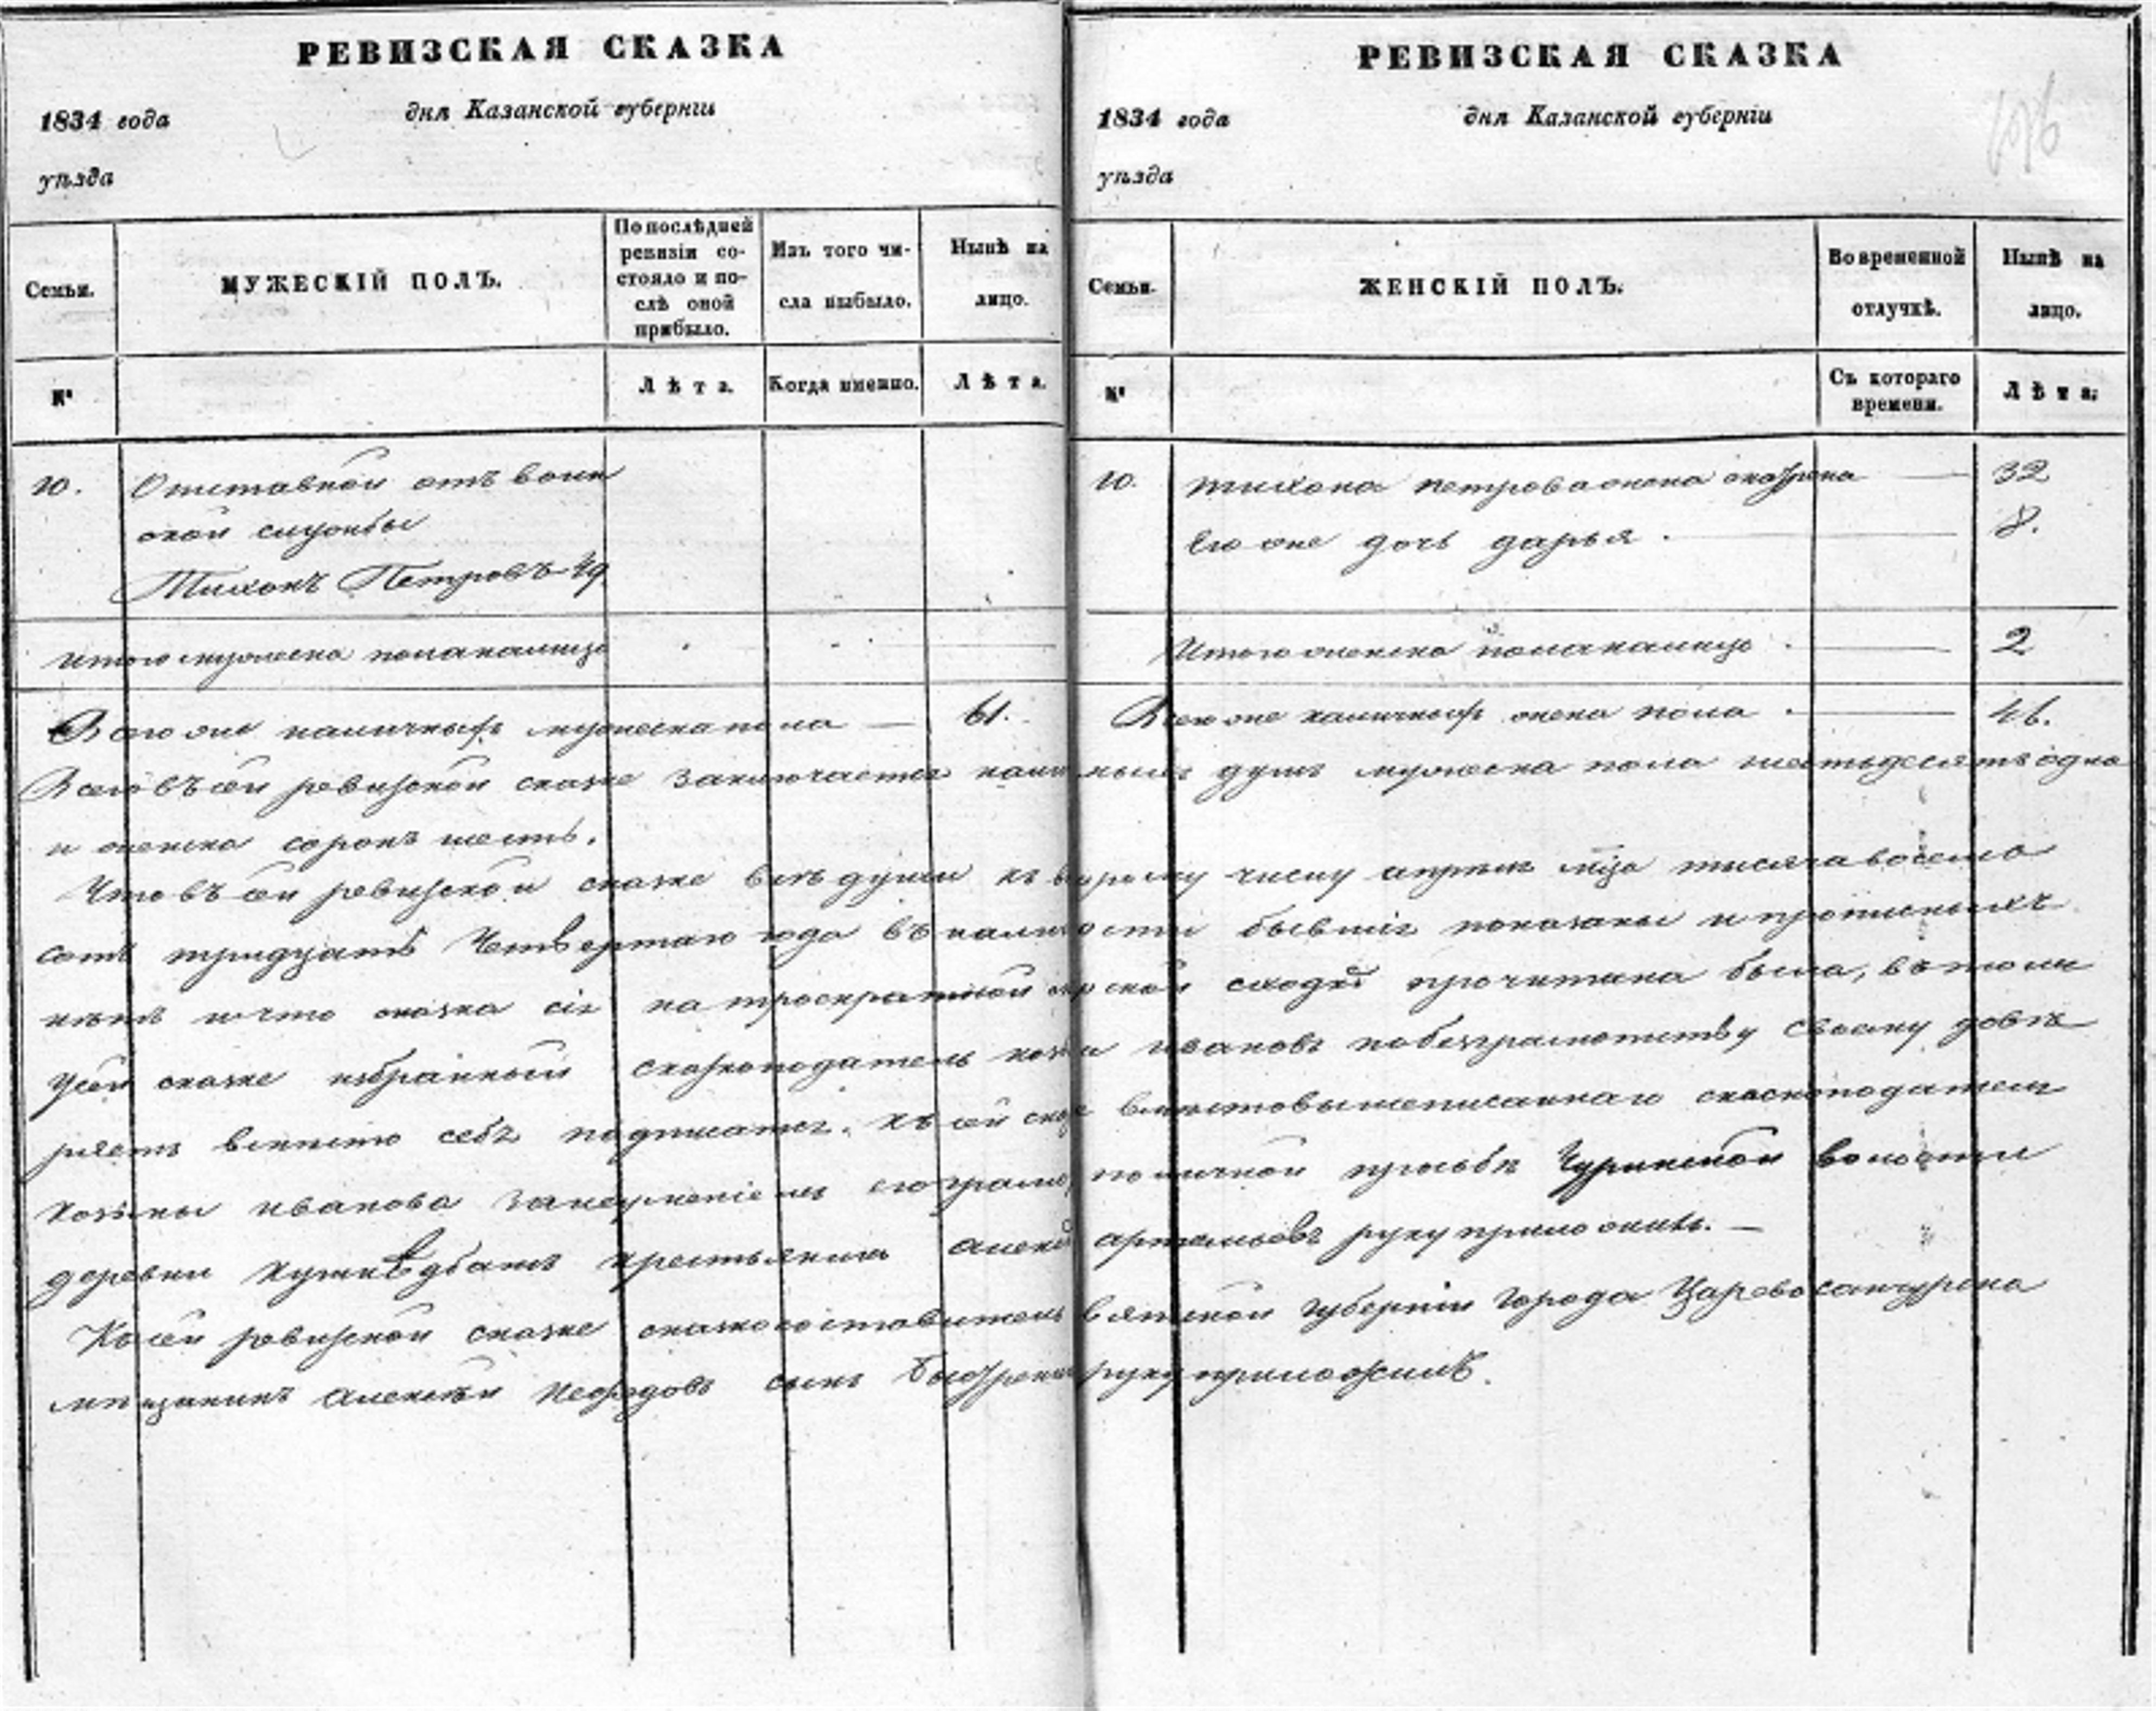 РЕВИЗСКАЯ СКАЗКА
1834 года дня Казанской губернiи
уѣзда
Семьи.
МУЖЕСКIЙ ПОЛЪ.
По послѣдней ревизiи состояло и послѣ оной прибыло.
Изъ того числа выбыло.
Нынѣ на лицо.
№
Лѣта.
Когда именно.
Лѣта.
10. Отставной отъ воин
ской службы
Тихонъ Петровъ 49
итого мужеска пола налицо
Всего же наличныхъ мужеска пола — 61.
РЕВИЗСКАЯ СКАЗКА
1834 года дня Казанской губернiи
уѣзда
Семьи.
ЖЕНСКIЙ ПОЛЪ.
Во временной отлучкѣ.
Нынѣ на лицо.
№
Съ котораго времени.
Лѣта.
10. Тихона Петрова жена 32
Его же дочь дарья 8.
Итого женска пола налицо 2
Всего же наличныхъ женска пола 46.
Всего въ сей ревизской сказке заключается наличныхъ душъ мужеска пола шестьдесятъ одна
и женска сорокъ шесть.
Что въ сей ревизской сказке все души къ второму числу апреля мца тысяча восемь
сотъ тридцать Четвертаго года въ наличности бывшiе показаны и прописныхъ
нетъ и что сказка сiя на троекратной мирской сходке прочитана была, въ том
сей сказке избранный сказкоподатель козма ивановъ по безграмотству своему дове
ряетъ вместо себя подписатся. Къ сей сказке вместо вышеписаннаго сказкоподателя
козмы иванова за неумениемъ его грамоте по личной прозьбе волости
деревни крестьянинъ алексей артемьевъ руку приложилъ. —
Къ сей ревизской сказке сказкосоставитель вятской губернiи города Царевосанчурска
мещанинъ алексей сынъ руку приложилъ.